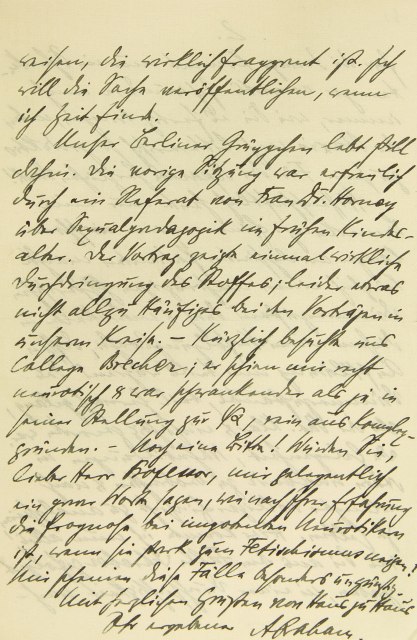 weisen, die wirklich frappant ist. Ich
will die Sache veröffentlichen, wenn
ich Zeit finde.
Unser Berliner Grüppchen lebt still
dahin. Die vorige Sitzung war erfreulich
durch ein Referat von Frau Dr. Horney
über Sexualpädagogik im frühen Kindes-
alter. Der Vortrag zeigte einmal wirkliche
Durchdringung des Stoffes; leider etwas
nicht allzu Häufiges bei den Vorträgen in
unserem Kreise. – Kürzlich besuchte uns
College Brecher; er schien mir recht
neurotisch & war schwankender als je in
seiner Stellung zur ΨA, rein aus Komplex-
gründen. – Noch eine Bitte! Würden Sie,
lieber Herr Professor, mir gelegentlich
ein paar Worte sagen, wie nach Ihrer Erfahrung
die Prognose bei impotenten Neurotikern
ist, wenn sie stark zum Fetischismus neigen?
Mir scheinen diese Fälle besonders ungünstig.
Mit herzlichen Grüßen von Haus zu Haus
Ihr ergebener Abraham.